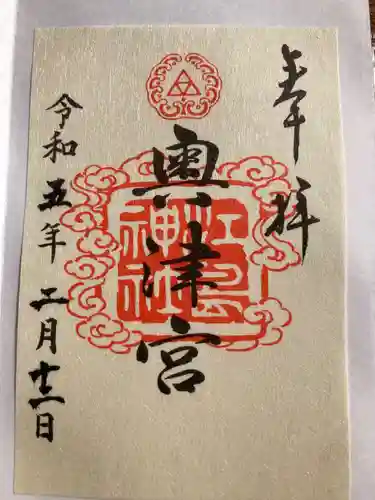 奉拝
奥津宮
江島
神社
令和五年二月十一日